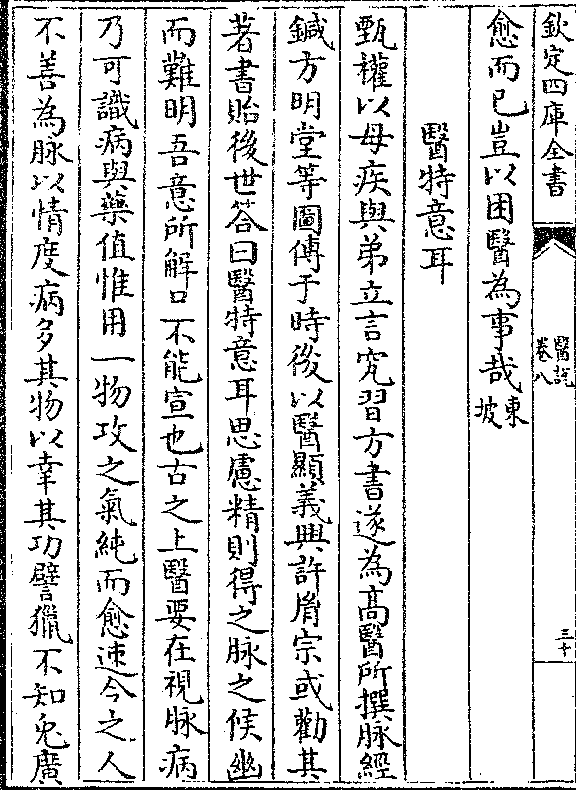 欽定四庫全書
醫說
卷八
三十
愈而已豈以困醫為事哉東坡
醫特意耳
甄權以母疾與弟立言究習方書遂為高醫所撰脉經
鍼方明堂等圖傳于時後以醫顯義興許胤宗或勸其
著書貽後世答曰醫特意耳思慮精則得之脉之候幽
而難明吾意所解口不能宣也古之上醫要在視脉病
乃可識病與藥值惟用一物攻之氣純而愈速今之人
不善為脉以情度病多其物以幸其功譬獵不知兎廣